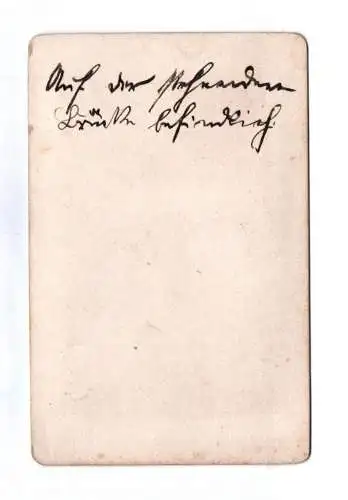 Auf der
Brücke befindlich